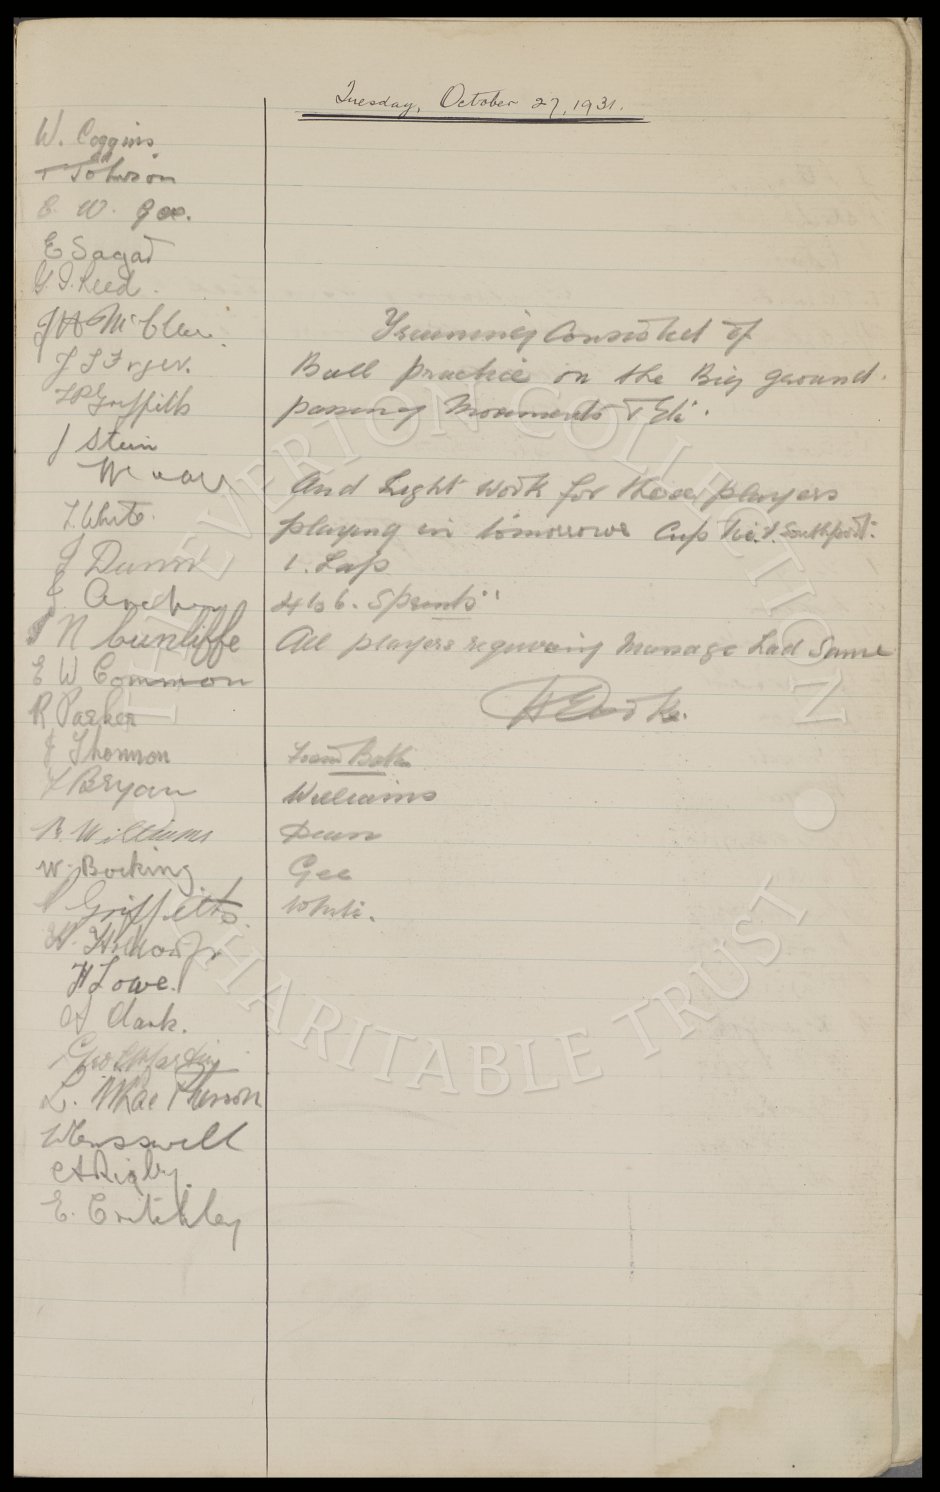 Tuesday, October 27, 1931.
W. Coggins
T Johnson
C. W. Gee.
E Sagar
G. D. Reed.
J H McClure
J S
T P Griffiths
J Stein
T. White.
J Dunn
J. Archer
N Cunliffe
E W Common
R Parker
J Thomson
F Bryan
B. Williams
W. Bocking
P Griffiths
H Lowe.
A Clark.
Geo S Martin
L. MacPherson
W Cresswell
C A Rigby.
E. Critchley
Trainning Consisted of
Ball practice on the Big ground.
passing Movements & Etc.
And Light Work for those players
playing in tomorrows Cup tie. v. Southport.
1. Lap
4 to 6. Sprints
All players requiring Massage had Same
H E Cooke.
Foam Bath
Williams
Dean
Gee
White.
THE EVERTON COLLECTION
CHARITABLE TRUST